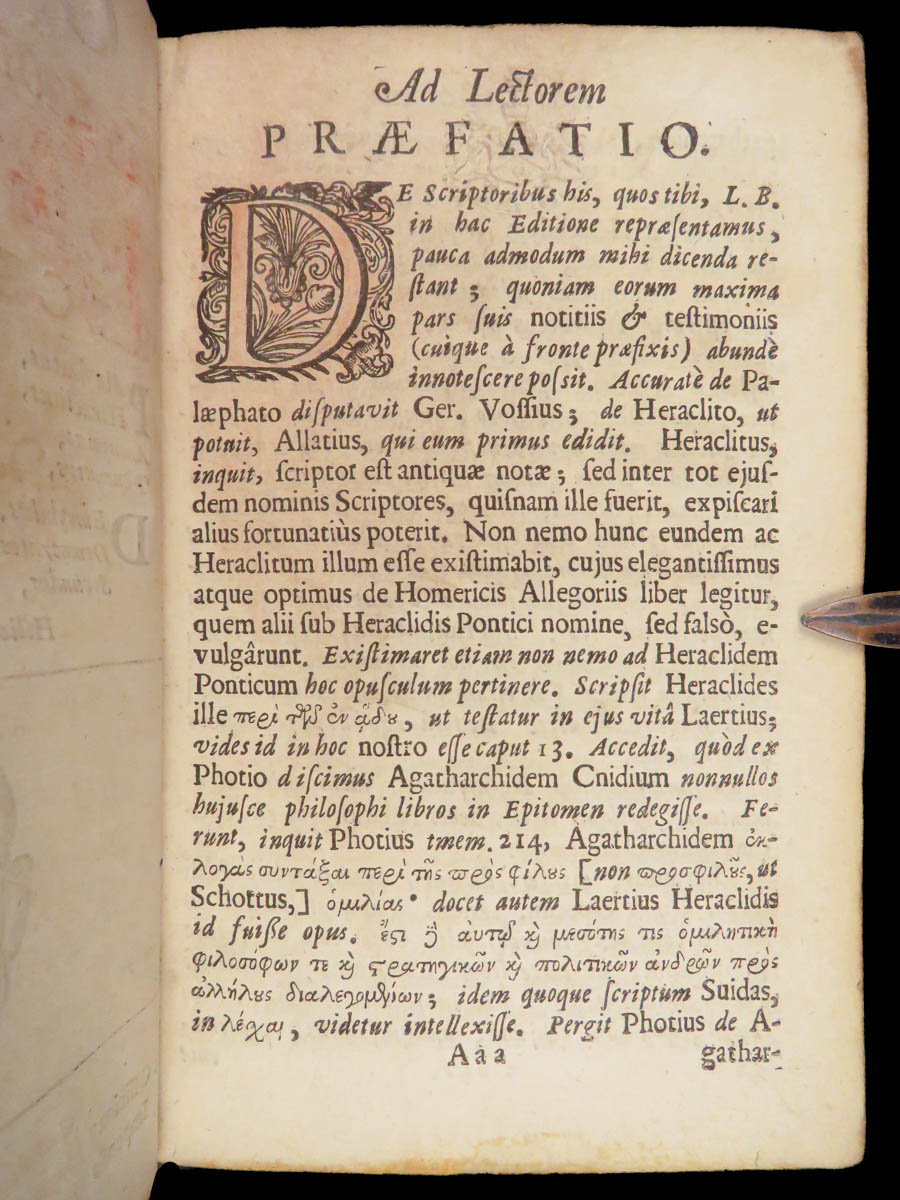 Ad Lectorem
PRÆFATIO.
DE Scriptoribus his, quos tibi, L. B.
in hac Editione repræſentamus,
pauca admodum mihi dicenda re-
ſtant; quoniam eorum maxima
pars ſuis notitiis & teſtimoniis
(cuique à fronte præfixis) abundè
innoteſcere poſsit. Accuratè de Pa-
læphato diſputavit Ger. Voſſius; de Heraclito, ut
potuit, Allatius, qui eum primus edidit. Heraclitus,
inquit, ſcriptor eſt antiquæ notæ; ſed inter tot ejuſ-
dem nominis Scriptores, quiſnam ille fuerit, expiſcari
alius fortunatiùs poterit. Non nemo hunc eundem ac
Heraclitum illum eſſe exiſtimabit, cujus elegantiſſimus
atque optimus de Homericis Allegoriis liber legitur,
quem alii ſub Heraclidis Pontici nomine, ſed falsò, e-
vulgârunt. Exiſtimaret etiam non nemo ad Heraclidem
Ponticum hoc opuſculum pertinere. Scripſit Heraclides
ille περὶ τῶν ἐν ᾅδου, ut teſtatur in ejus vitâ Laertius;
vides id in hoc noſtro eſſe caput 13. Accedit, quòd ex
Photio diſcimus Agatharchidem Cnidium nonnullos
hujuſce philoſophi libros in Epitomen redegiſſe. Fe-
runt, inquit Photius tmem. 214, Agatharchidem ἐκ-
λογὰς συντάξαι περὶ τῆς πρὸς φίλους [non προσφιλοῦς, ut
Schottus,] ὁμιλίας· docet autem Laertius Heraclidis
id fuiſse opus. ἔστι δὲ αὐτῷ καὶ μεσότης τις ὁμιλητικὴ
φιλοσόφων τε καὶ στρατηγικῶν καὶ πολιτικῶν ἀνδρῶν πρὸς
ἀλλήλους διαλεγομένων; idem quoque ſcriptum Suidas,
in λέσχαι, videtur intellexiſſe. Pergit Photius de A-
Aaa
gathar-